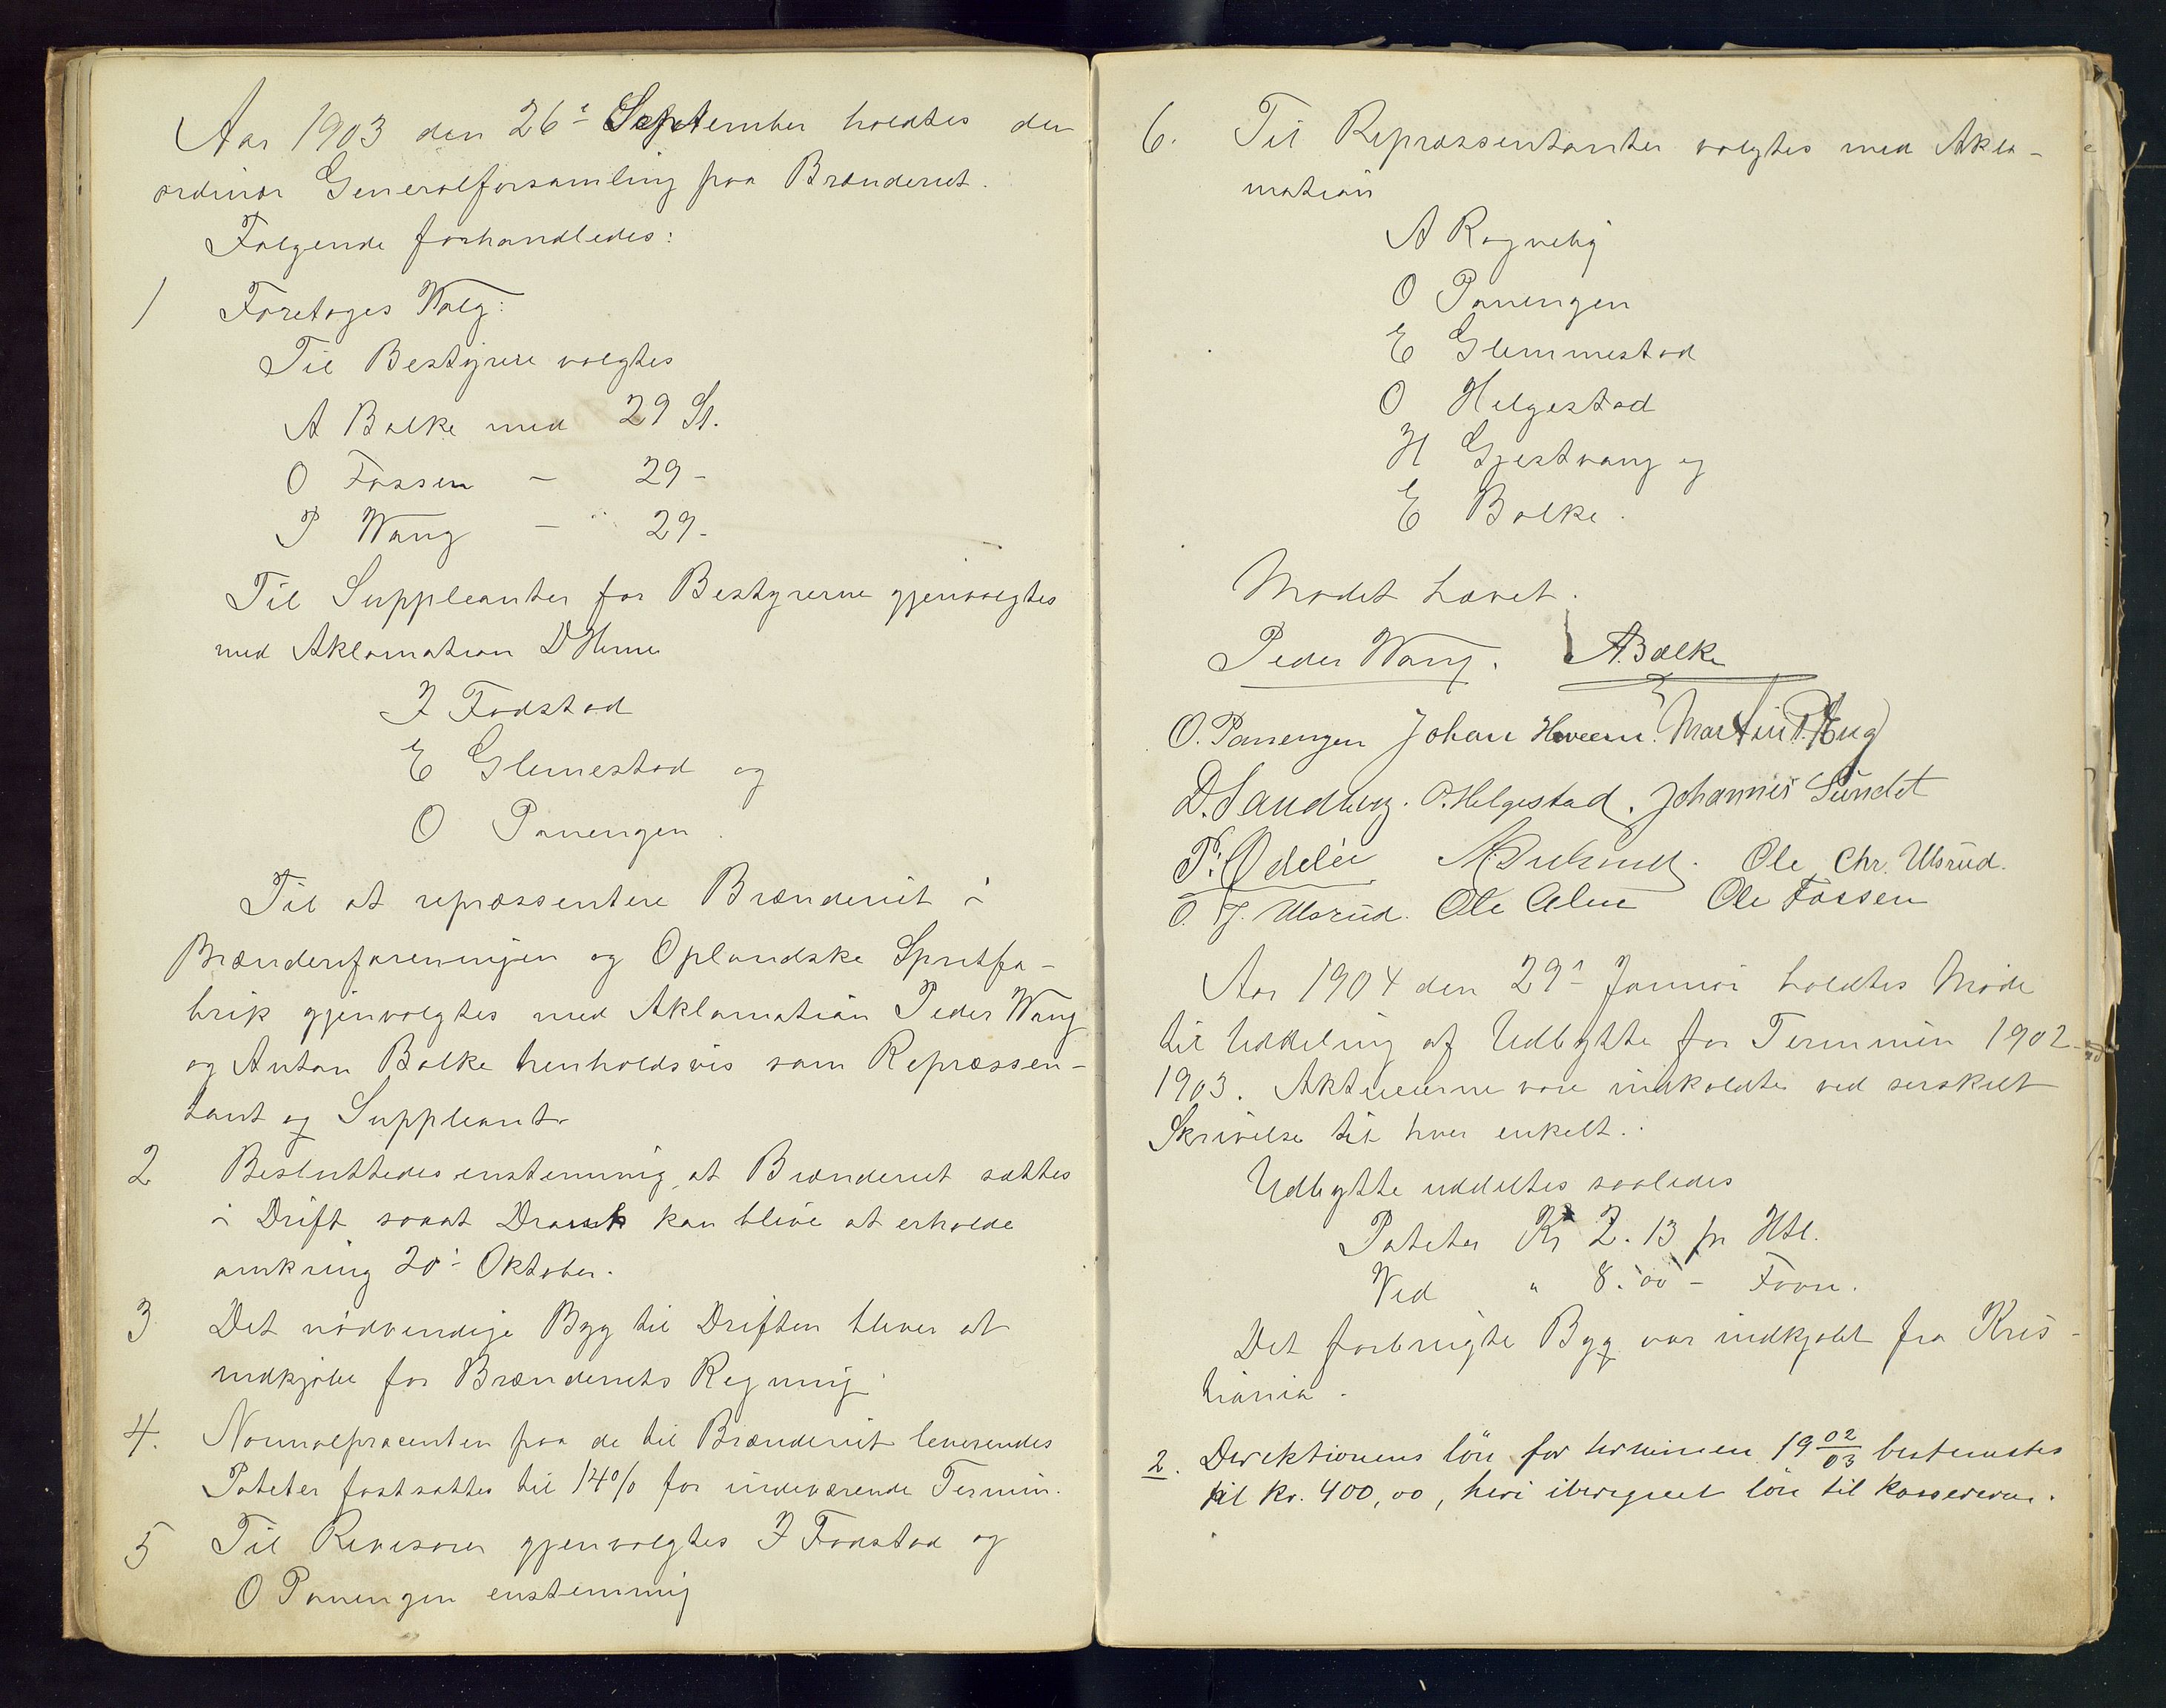 Aar 1903 den 26' September holdtes den
ordinær Generalforsamling paa Brænderiet.
Følgende forhandledes:
1 Foretoges Valg:
Til Bestyrere valgtes
A Balke med 29 St.
O Fossen - 29 -
P Wang - 29 -
Til Suppleanter for Bestyrerne gjenvalgtes
med Aklamation D
J Fodstad
E Glemestad og
O Panengen.
Til at repræssentere Brænderiet i
Brænderiforeningen og Oplandske Spritfa-
brik gjenvalgtes med Aklamation Peder Wang
og Anton Balke henholdsvis som Repræssen-
tant og Suppleant.
2 Besluttedes enstemmig at Brænderiet sættes
i Drift saaat Drank kan blive at erholde
omkring 20' Oktober.
3 Det nødvendige Byg til Driften bliver at
indkjøbe for Brænderiets Regning.
4. Normalprocenten paa de til Brænderiet leverendes
Poteter fastsattes til 14% for indeværende Termin.
5 Til Revisorer gjenvalgtes J Fodstad og
O Panengen enstemmig
6. Til Repræssentanter valgtes med Akla-
mation
A Rogneby
O Panengen
E Glemmestad
O Helgestad
H Gjestvang og
E Balke.
Mødet hævet.
Peder Wang. A. Balke
O. Panengen Johan Martin P.
D. Sandberg. O. Helgestad. Johannes Sundet
P. Ødelie Ole Chr. Ulsrud.
O. J. Ulsrud. Ole Alm Ole Fossen
Aar 1904 den 29' Januar holdtes Møde
til Uddeling af Udbytte for Terminen 1902-
1903. Aktieeierne vare indkaldte ved særskilt
Skrivelse til hver enkelt.
Udbytte uddeltes saaledes
Poteter Kr 2.13 pr Htl.
Ved " 8.00 - Favn.
Det forbrugte Byg var indkjøbt fra Kris-
tiania.
2. Direktionens løn for terminen 19 02/03 bestemtes
til kr. 400,00, heri iberegnet løn til kassereren.